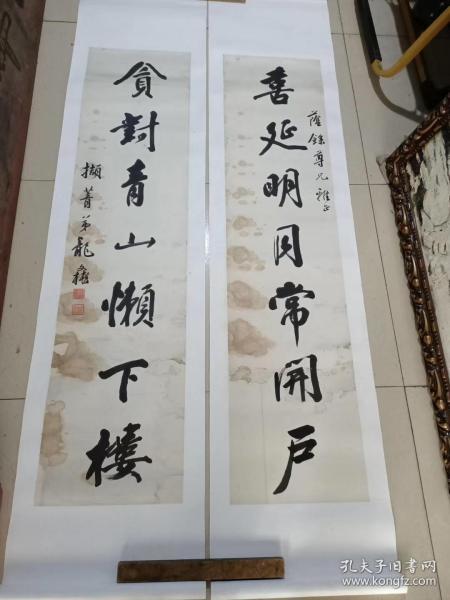 喜延明月常開戶
蔭餘尊兄雅正
貪對青山懶下樓
擷菁弟龍
孔夫子旧书网
www.kongfz.com